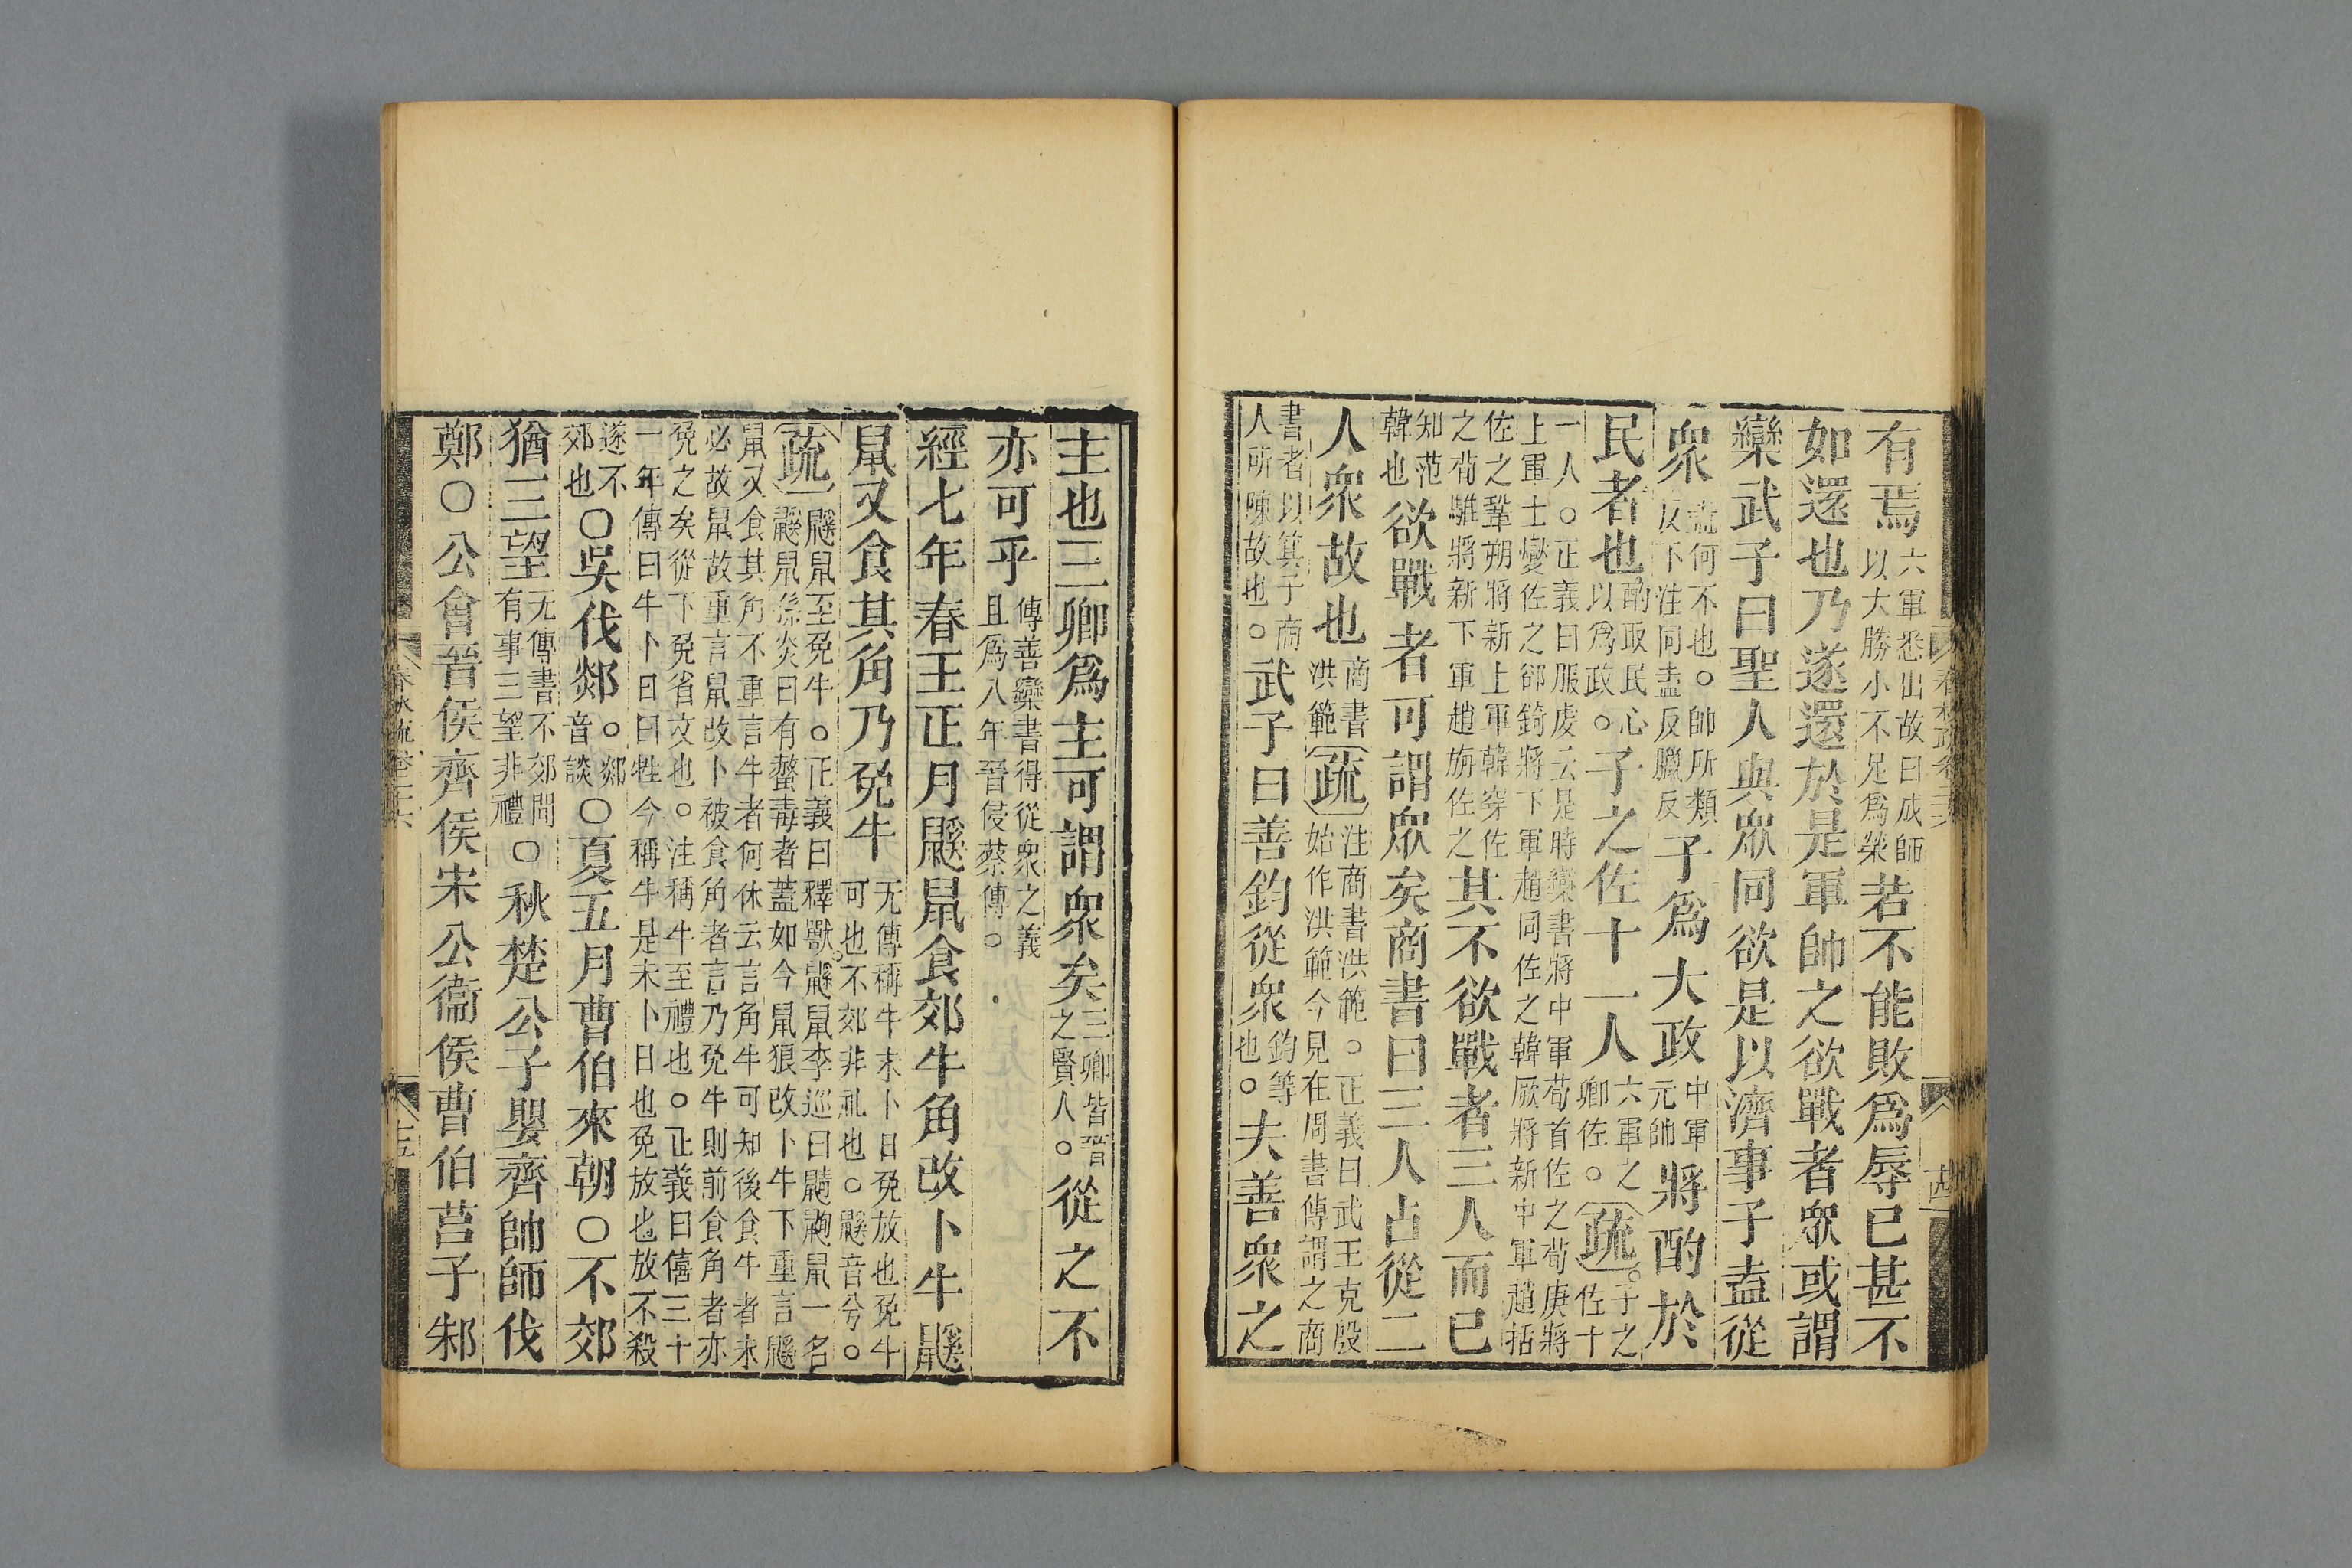 有焉六軍悉出故曰成師以大勝小不足爲榮若不能敗爲辱已甚不
如還也乃遂還於是軍帥之欲戰者眾或謂
欒武子曰聖人與眾同欲是以濟事子盍從
眾盍何不也。帥所類反下注同盍反臘反子爲大政中軍元帥將酌於
民者也酌取民心以爲政。子之佐十一人六軍之卿佐。疏子之佐十
一人。正義曰服虔云是時欒書將中軍荀首佐之荀庚將
上軍士燮佐之郤錡將下軍趙同佐之韓厥將新中軍趙括
佐之鞏朔將新上軍韓穿佐之荀騅將新下軍趙旃佐之其不欲戰者三人而已
知范韓也欲戰者可謂眾矣商書曰三人占從二
人眾故也商書洪範疏注商書洪範。正義曰武王克殷始作洪範今見在周書傳謂之商
書者以箕子商人所陳故也。武子曰善鈞從眾鈞等也。夫善眾之
主也三卿爲主可謂眾矣三卿皆晉之賢人。從之不
亦可乎傳善欒書得從眾之義且爲八年晉侵蔡傳。
經七年春王正月鼷鼠食郊牛角改卜牛鼷
鼠又食其角乃免牛无傳稱牛未卜日免放也免牛可也不郊非礼也。鼷音兮。
疏鼷鼠至免牛。正義曰釋獸鼷鼠李巡曰鼱鼩鼠一名
鼷鼠孫炎曰有螫毒者蓋如今鼠狼改卜牛下重言鼷
鼠又食其角不重言牛者何休云言角牛可知後食牛者未
必故鼠故重言鼠改卜被食角者言乃免牛則前食角者亦
免之矣從下免省文也。注稱牛至禮也。正義曰僖三十
一年傳曰牛卜日曰牲今稱牛是未卜日也免放也放不殺
遂不郊也○吳伐郯。郯音談○夏五月曹伯來朝○不郊
猶三望无傳書不郊間有事三望非禮○秋楚公子嬰齊帥師伐
鄭○公會晉侯齊侯宋公衞侯曹伯莒子邾